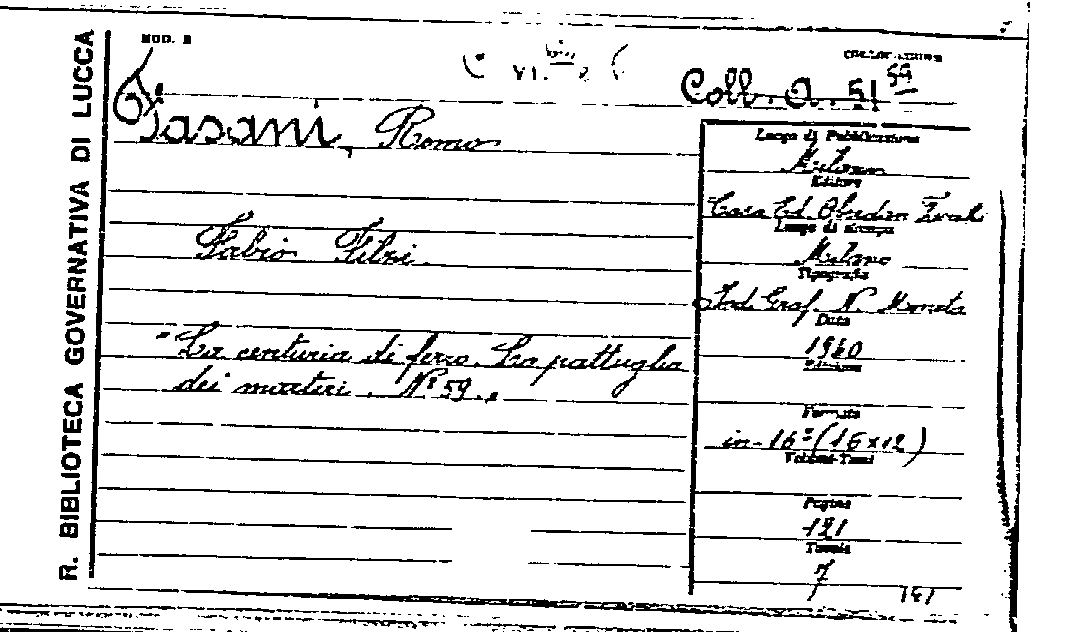 R. BIBLIOTECA GOVERNATIVA DI LUCCA
MOD. B
COLLOCAZIONE
Coll. A. 51 59
Fasani, Remo
Fabio Filzi.
"La centuria di ferro. La pattuglia
dei martiri. N° 59.
Luogo di Pubblicazione
Milano
Editore
Casa Ed. Oberdan Zucchi
Luogo di stampa
Milano
Tipografia
Ind. Graf. N. Moneta
Data
1940
Edizione
Formato
in-16° (16x12)
Volumi-Tomi
Pagine
121
Tavole
7